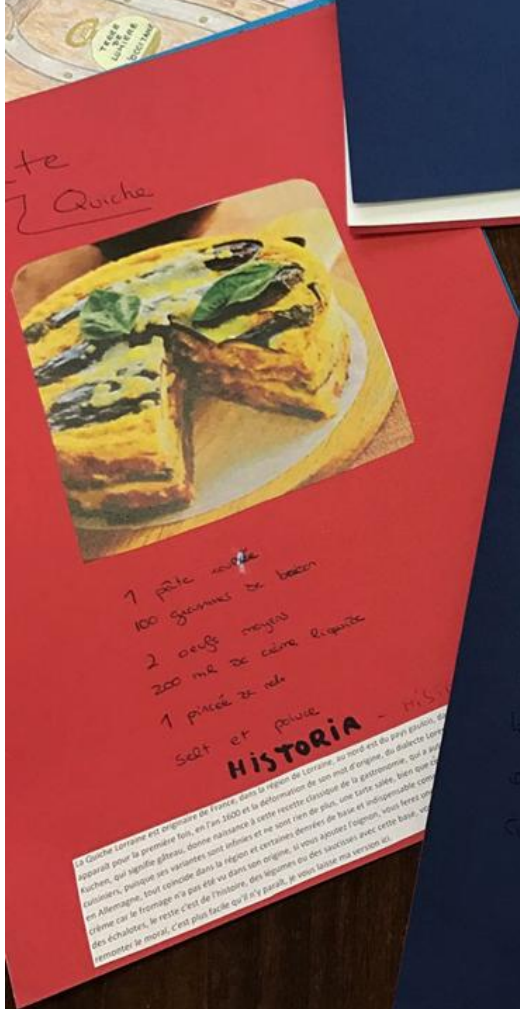 TERRE
DE
LUMIÈRE
OCCITANE
Quiche
1 pâte
100 grammes de bacon
2 oeufs moyens
200 ml de crème liquide
1 pincée de
selt et poivre
HiSTORiA - HiST
La Quiche Lorraine est originaire de France, dans la région de Lorraine, au nord-est du pays gaulois, da
apparaît pour la première fois, en l'an 1600 et la déformation de son mot d'origine, du dialecte Lore
Kuchen, qui signifie gâteau, donne naissance à cette recette classique de la gastronomie, qui a au
cuisiniers, puisque ses variantes sont infinies et ne sont rien de plus, une tarte salée, bien que c
en Allemagne, tout coincide dans la région et certaines denrées de base et indispensable com
crème car le fromage n'a pas été vu dans son origine, si vous ajoutez l'oignon, vous ferez un
des échalotes, le reste c'est de l'histoire, des légumes ou des saucisses avec cette base, vo
remonter le moral, c'est plus facile qu'il n'y paraît, je vous laisse ma version ici.